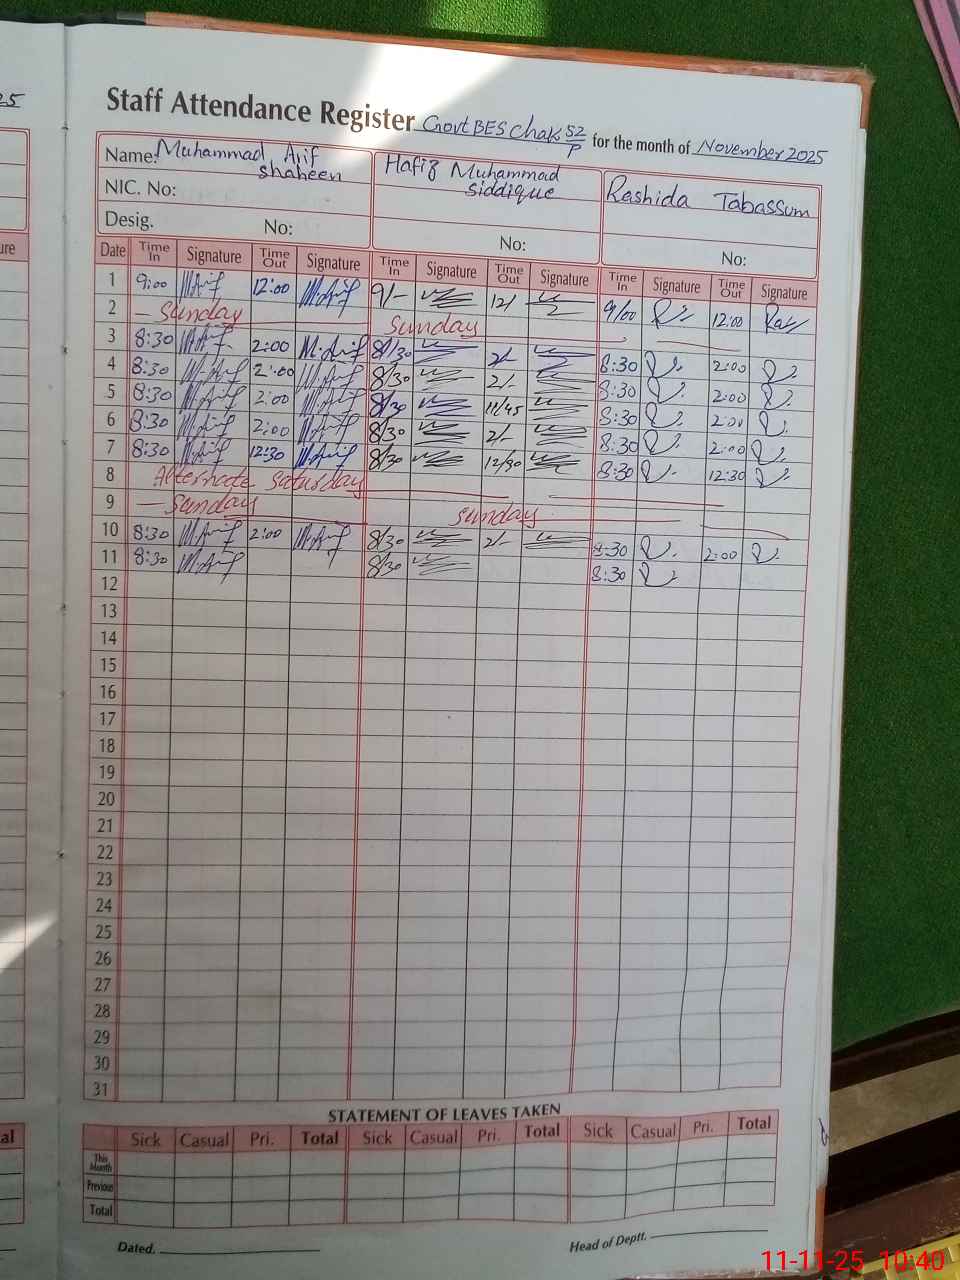 25
Staff Attendance Register Govt BES Chak 52/P for the month of November 2025
Name: Muhammad Arif shaheen Hafiz Muhammad siddique Rashida Tabassum
NIC. No:
Desig. No: No: No:
ure Date Time In Signature Time Out Signature Time In Signature Time Out Signature Time In Signature Time Out Signature
1 9:00 M.Arif 12:00 M.Arif 9/- 12/ 9/00 12:00
2 - Sunday Sunday
3 8:30 M.Arif 2:00 M.Arif 8/30 2/- 8:30 2:00
4 8:30 M.Arif 2:00 M.Arif 8/30 2/- 8:30 2:00
5 8:30 M.Arif 2:00 M.Arif 8/30 11/45 8:30 2:00
6 8:30 M.Arif 2:00 M.Arif 8/30 2/- 8:30 2:00
7 8:30 M.Arif 12:30 M.Arif 8/30 12/30 8:30 12:30
8 Alternate Saturday
9 - Sunday Sunday
10 8:30 M.Arif 2:00 M.Arif 8/30 2/- 8:30 2:00
11 8:30 M.Arif 8/30 8:30
12
13
14
15
16
17
18
19
20
21
22
23
24
25
26
27
28
29
30
31
STATEMENT OF LEAVES TAKEN
al Sick Casual Pri. Total Sick Casual Pri. Total Sick Casual Pri. Total
This Month
Previous
Total
Dated. Head of Deptt.
11-11-25 10:40